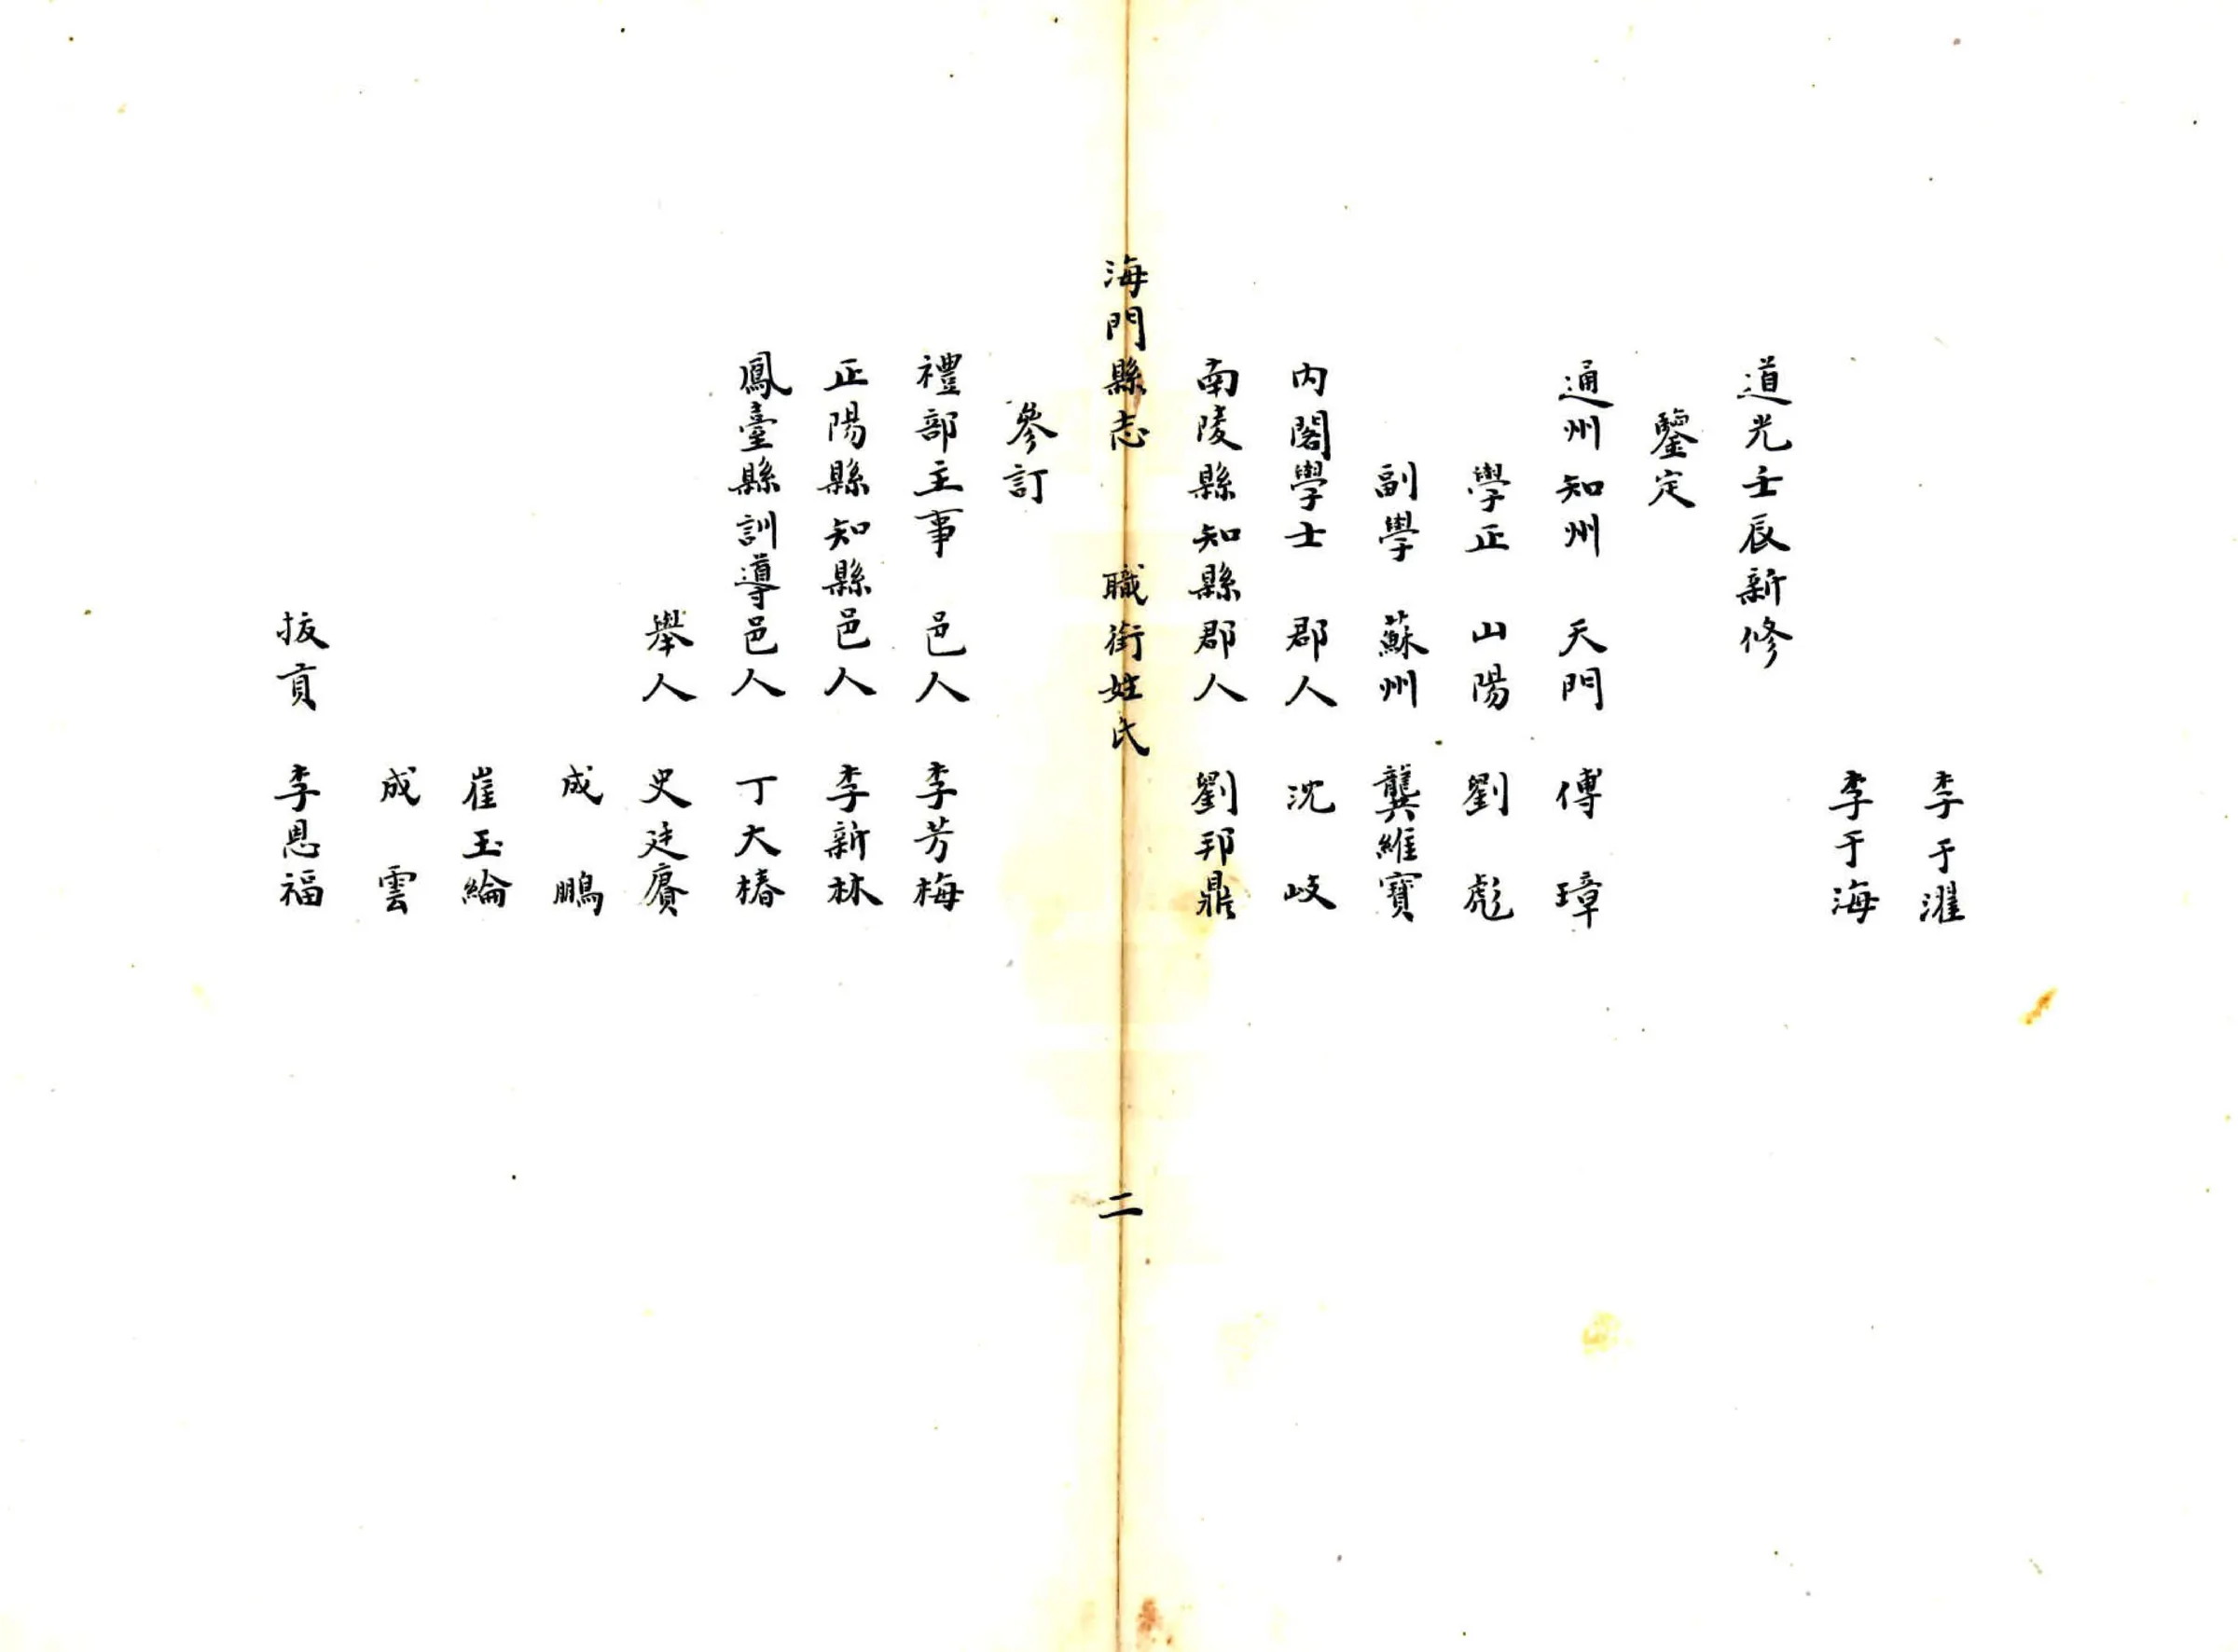 李于濯
李于海
道光壬辰新修
鑒定
通州知州 天門 傅璋
學正 山陽 劉彪
副學 蘇州 龔維寶
內閣學士 郡人 沈岐
南陵縣知縣郡人 劉邦鼎
海門縣志 職銜姓氏 二
參訂
禮部主事 邑人 李芳梅
正陽縣知縣邑人 李新林
鳳臺縣訓導邑人 丁大椿
舉人 史廷賡
成鵬
崔玉綸
成雲
拔貢 李恩福